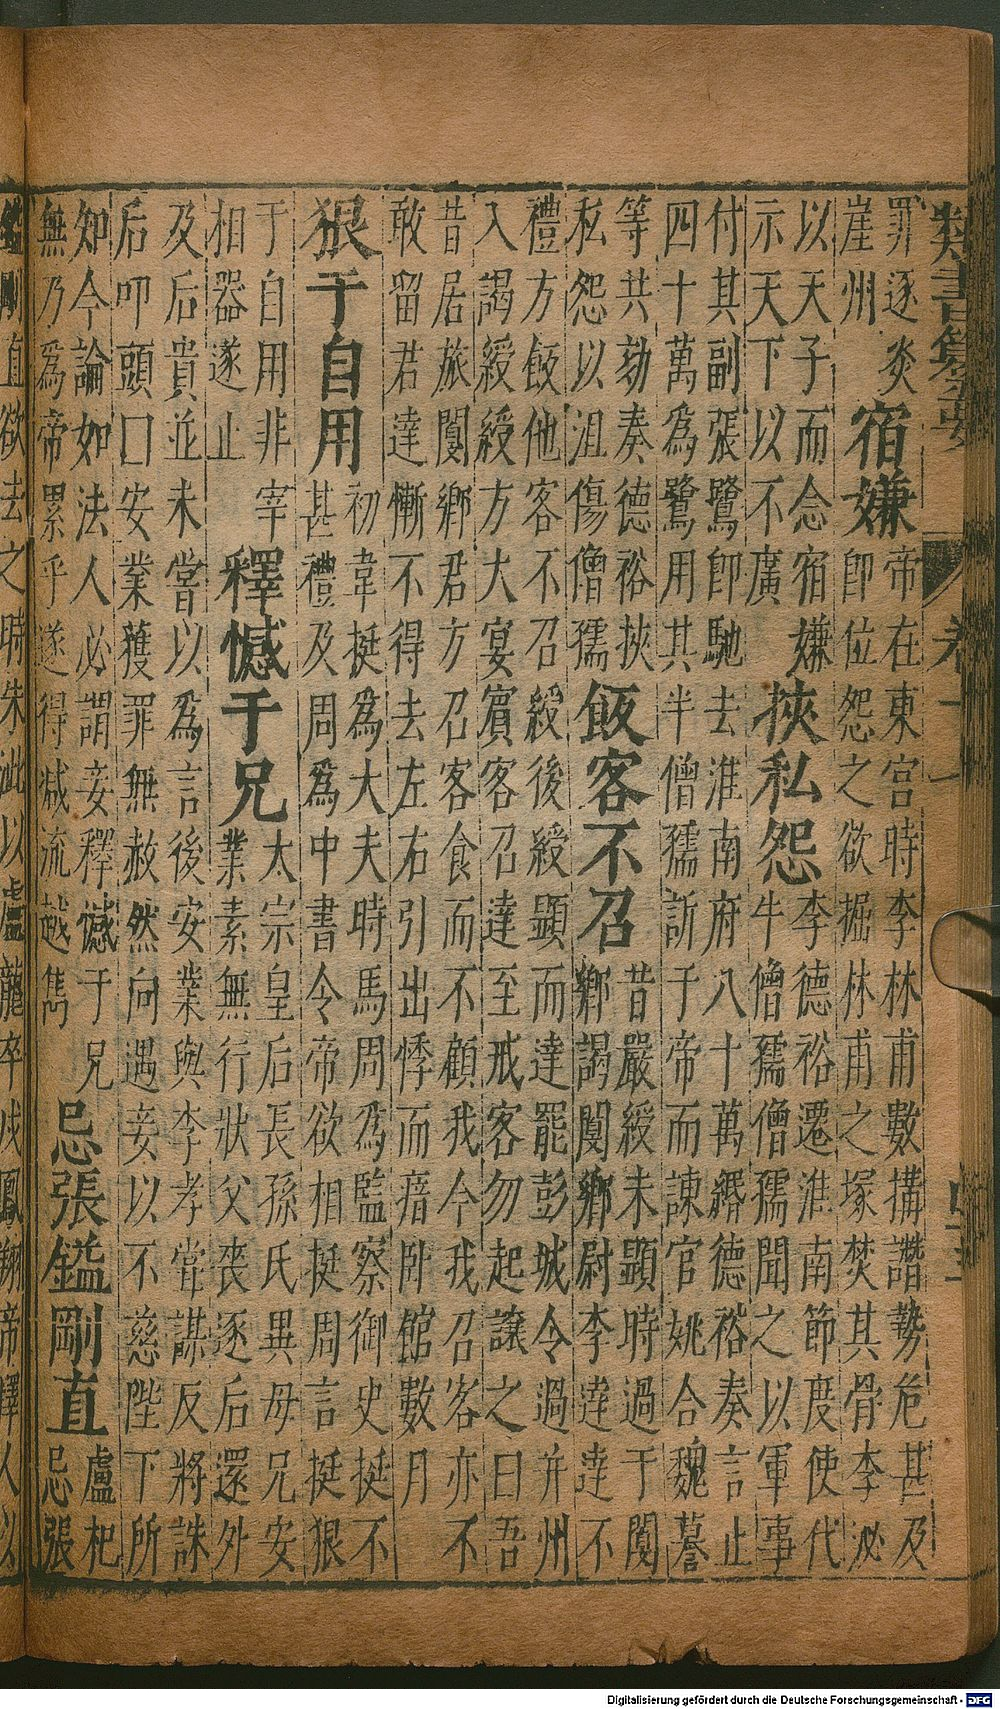 類書纂要 卷十一
罪逐炎
崖州
宿嫌
帝在東宮時李林甫數搆譖勢危甚及
即位怨之欲掘林甫之塚焚其骨李泌
以天子而念宿嫌
示天下以不廣
挾私怨
李德裕遷淮南節度使代
牛僧孺僧孺聞之以軍事
付其副張鷺即馳去淮南府八十萬緡德裕奏言止
四十萬為鷺用其半僧孺訢于帝而諫官姚合魏謩
等共劾奏德裕挾
私怨以沮傷僧孺
飯客不召
昔嚴綬未顯時過于閿
鄉謁閿鄉尉李達達不
禮方飯他客不召綬後綬顯而達罷彭城令過并州
入謁綬綬方大宴賓客召達至戒客勿起讓之曰吾
昔居旅閿鄉君方召客食而不顧我今我召客亦不
敢留君達慚不得去左右引出悸而瘖臥館數月
狠于自用
初韋挺為大夫時馬周為監察御史挺不
甚禮及周為中書令帝欲相挺周言挺狠
于自用非宰
相器遂止
釋憾于兄
太宗皇后長孫氏異母兄安
業素無行狀父喪逐后還外
及后貴並未嘗以為言後安業與李孝嘗謀反將誅
后叩頭曰安業獲罪無赦然向遇妾以不慈陛下所
知今論如法人必謂妾釋憾于兄
無乃為帝累乎遂得减流越雋
忌張鎰剛直
盧杞
忌張
鎰剛直欲去之時朱泚以盧龍卒戍鳳翔帝擇人以
Digitalisierung gefördert durch die Deutsche Forschungsgemeinschaft - DFG